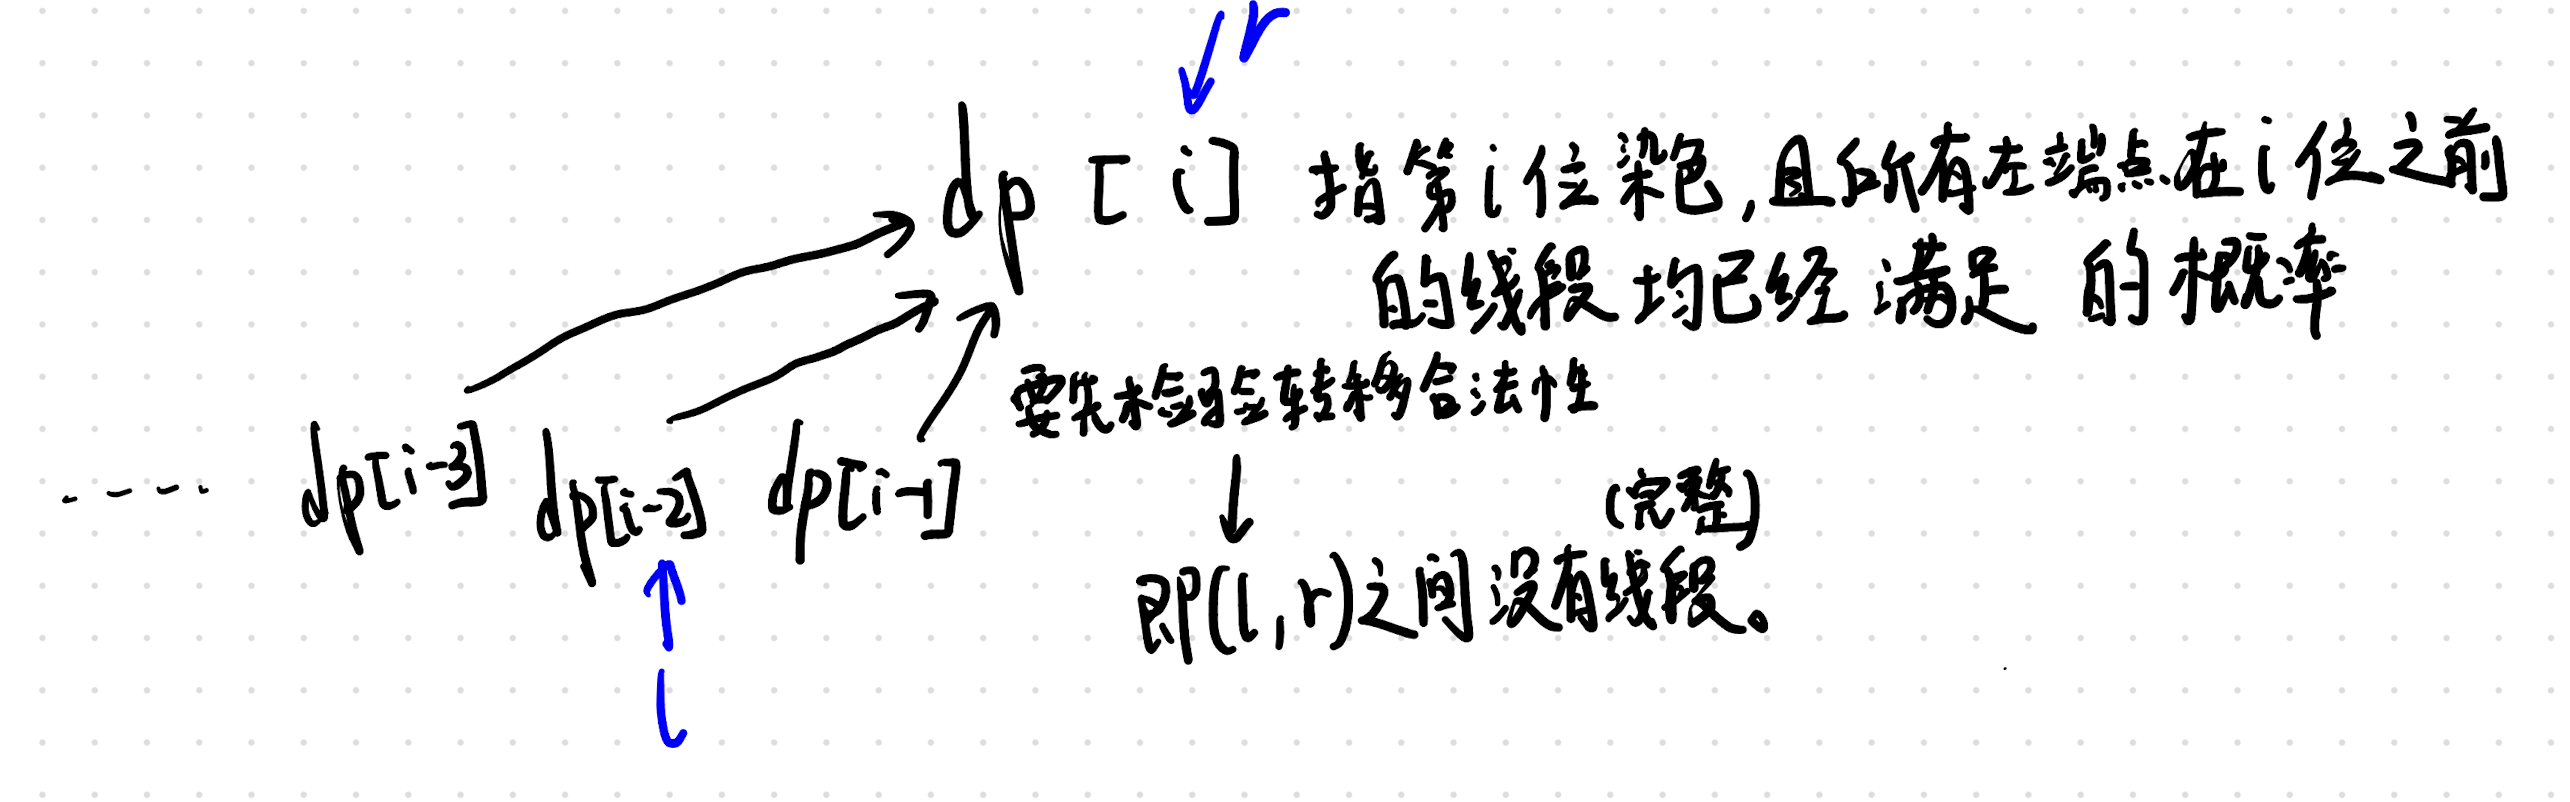 r
dp[i] 指第i位染色,且所有左端点在i位之前
的线段均已经满足 的概率
要先检验转移合法性
dp[i-3] dp[i-2] dp[i-1]
(完整)
即(l,r)之间没有线段。
l